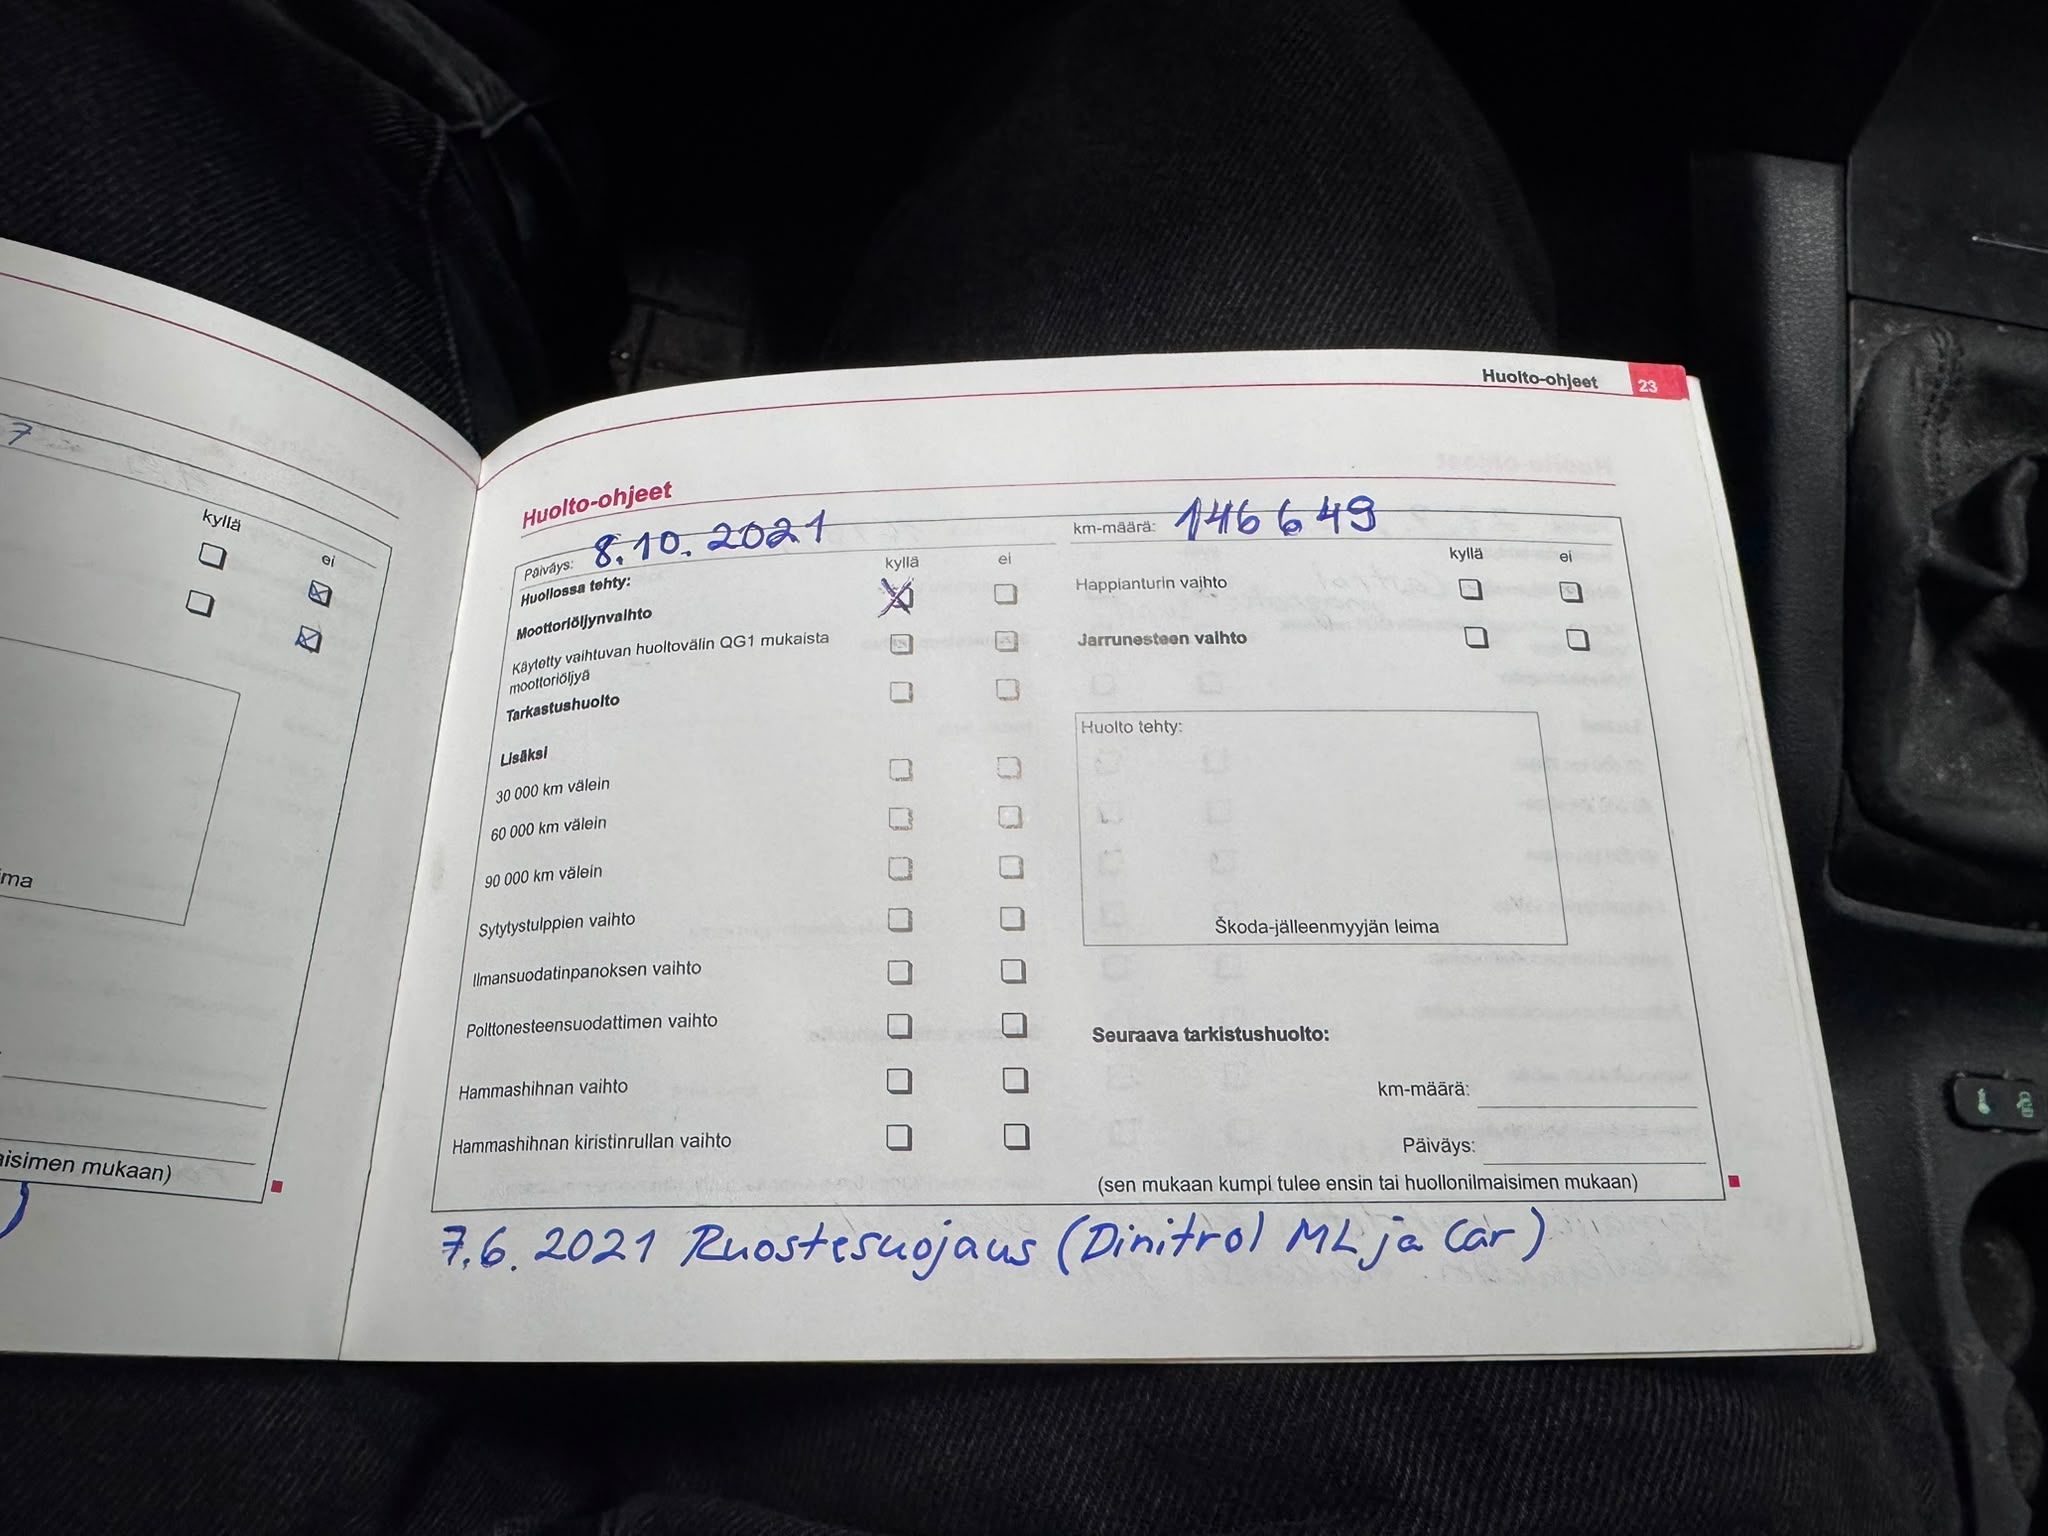 7
kyllä
ei
ma
isimen mukaan)
Huolto-ohjeet 23
Huolto-ohjeet
Päiväys: 8.10.2021
km-määrä: 146 649
Huollossa tehty: kyllä ei
Moottoriöljynvaihto
Käytetty vaihtuvan huoltovälin QG1 mukaista
moottoriöljyä
Tarkastushuolto
Lisäksi
30 000 km välein
60 000 km välein
90 000 km välein
Sytytystulppien vaihto
Ilmansuodatinpanoksen vaihto
Polttonesteensuodattimen vaihto
Hammashihnan vaihto
Hammashihnan kiristinrullan vaihto
kyllä ei
Happianturin vaihto
Jarrunesteen vaihto
Huolto tehty:
Škoda-jälleenmyyjän leima
Seuraava tarkistushuolto:
km-määrä:
Päiväys:
(sen mukaan kumpi tulee ensin tai huollonilmaisimen mukaan)
7.6.2021 Ruostesuojaus (Dinitrol ML ja Car)